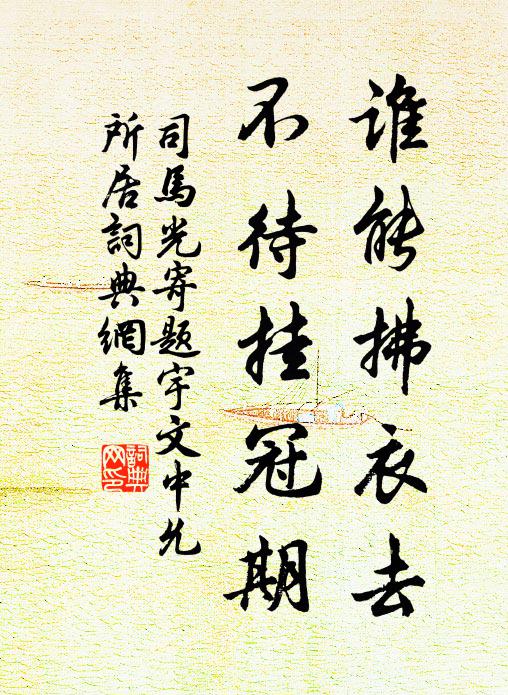 谁能拂衣去
不待挂冠期
司馬光寄題宇文中允
所居詞典網集
詞典网印